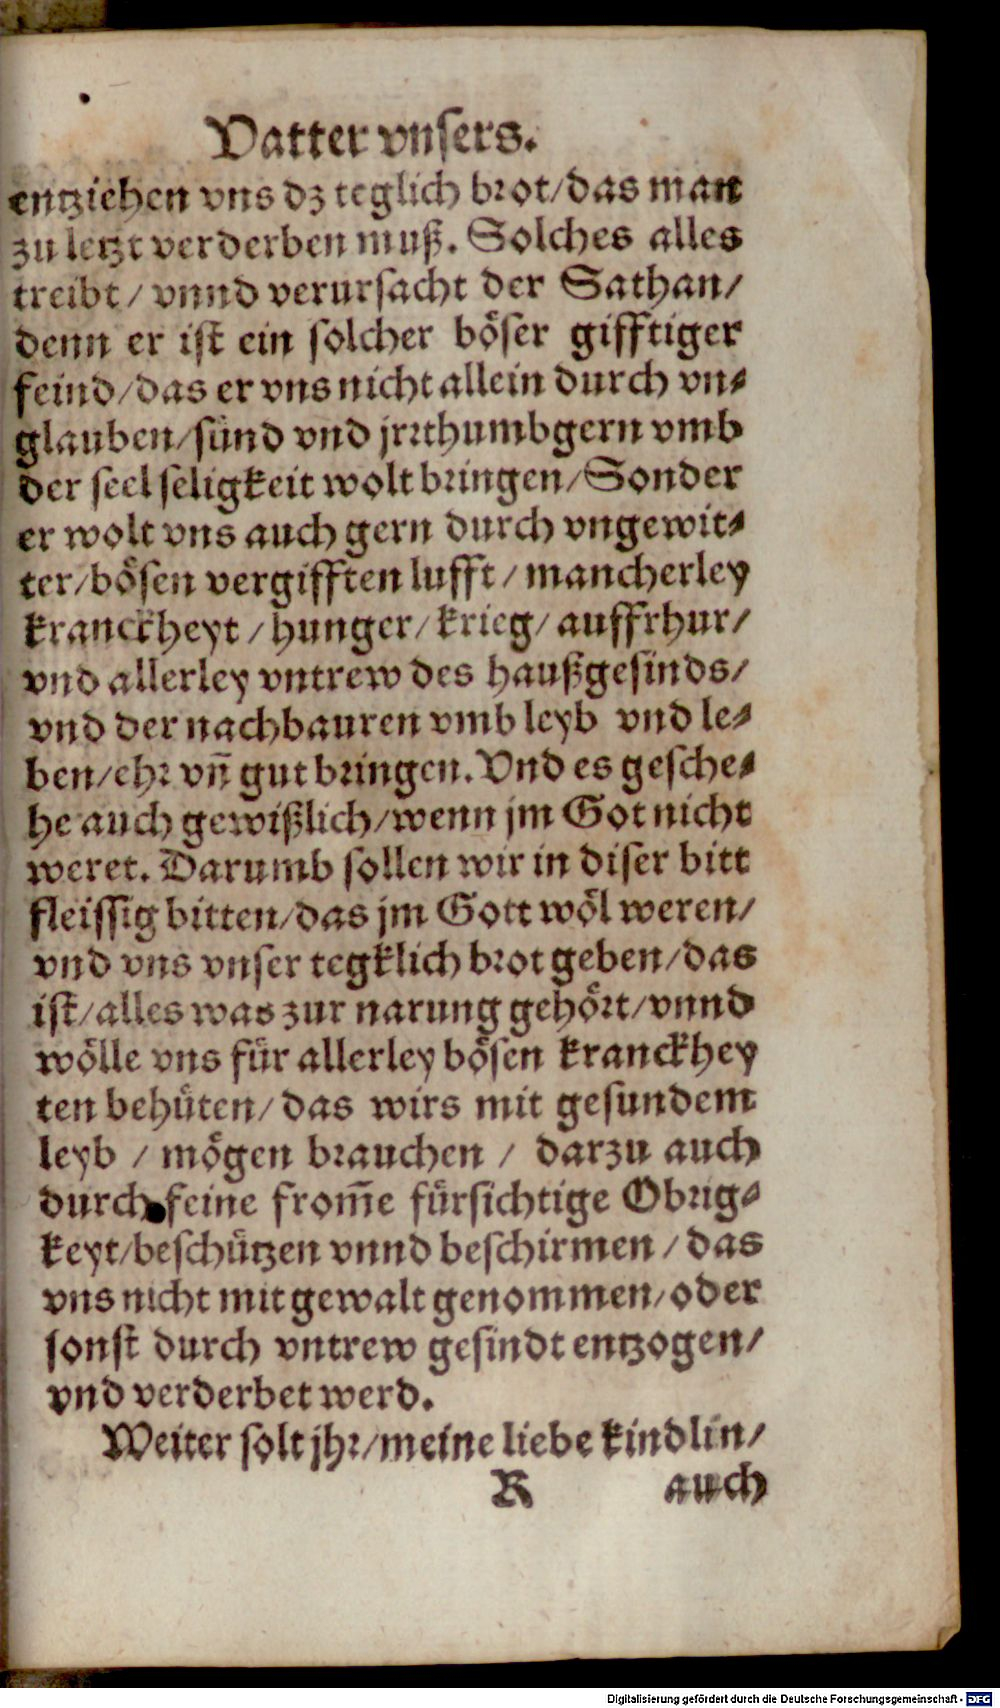 Vatter vnsers.
entziehen vns dz teglich brot/das man
zu letzt verderben muß. Solches alles
treibt/ vnnd verursacht der Sathan/
denn er ist ein solcher böser gifftiger
feind/das er vns nicht allein durch vn⸗
glauben/sünd vnd jrrthumbgern vmb
der seel seligkeit wolt bringen/Sonder
er wolt vns auch gern durch vngewit⸗
ter/bösen vergifften lufft/ mancherley
kranckheyt/hunger/krieg/auffrhur/
vnd allerley vntrew des haußgesinds/
vnd der nachbauren vmb leyb vnd le⸗
ben/ehr vn̄ gut bringen. Vnd es gesche⸗
he auch gewißlich/wenn jm Got nicht
weret. Darumb sollen wir in diser bitt
fleissig bitten/das jm Gott wöl weren/
vnd vns vnser tegklich brot geben/das
ist/alles was zur narung gehört/vnnd
wölle vns für allerley bösen kranckhey
ten behüten/das wirs mit gesundem
leyb / mögen brauchen / darzu auch
durch feine from̄e fürsichtige Obrig⸗
keyt/beschützen vnnd beschirmen/ das
vns nicht mit gewalt genommen/oder
sonst durch vntrew gesindt entzogen/
vnd verderbet werd.
Weiter solt jhr/meine liebe kindlin/
R auch
Digitalisierung gefördert durch die Deutsche Forschungsgemeinschaft - DFG